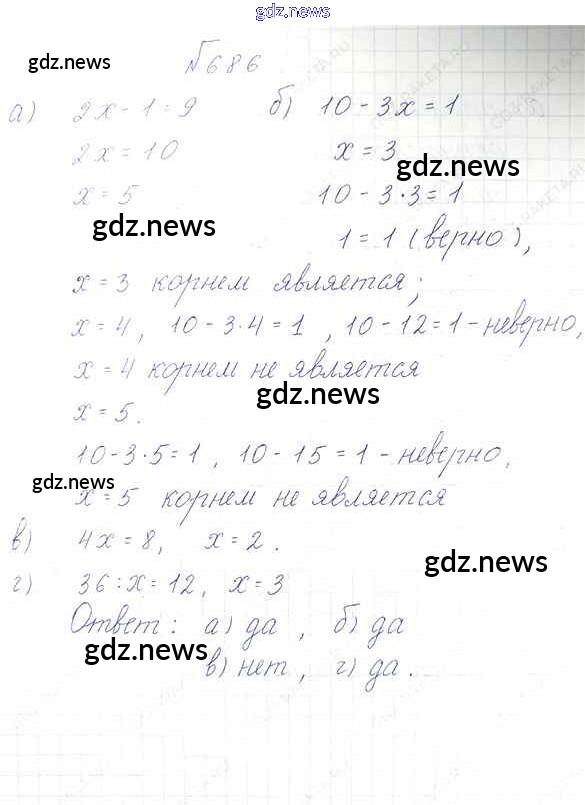 gdz.news
gdz.news
№686
а) 2x - 1 = 9 б) 10 - 3x = 1
2x = 10 x = 3
gdz.news
x = 5 10 - 3·3 = 1
gdz.news
1 = 1 (верно),
x = 3 корнем является;
x = 4, 10 - 3·4 = 1, 10 - 12 = 1 - неверно,
x = 4 корнем не является
gdz.news
x = 5.
10 - 3·5 = 1, 10 - 15 = 1 - неверно,
gdz.news
x = 5 корнем не является
в) 4x = 8, x = 2.
gdz.news
г) 36 : x = 12, x = 3
Ответ: а) да, б) да
gdz.news
в) нет, г) да.